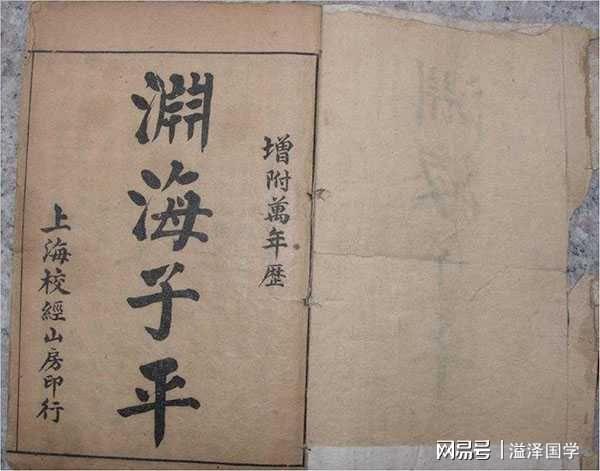 增附萬年歷
淵海子平
上海校經山房印行
网易号 | 溢泽国学